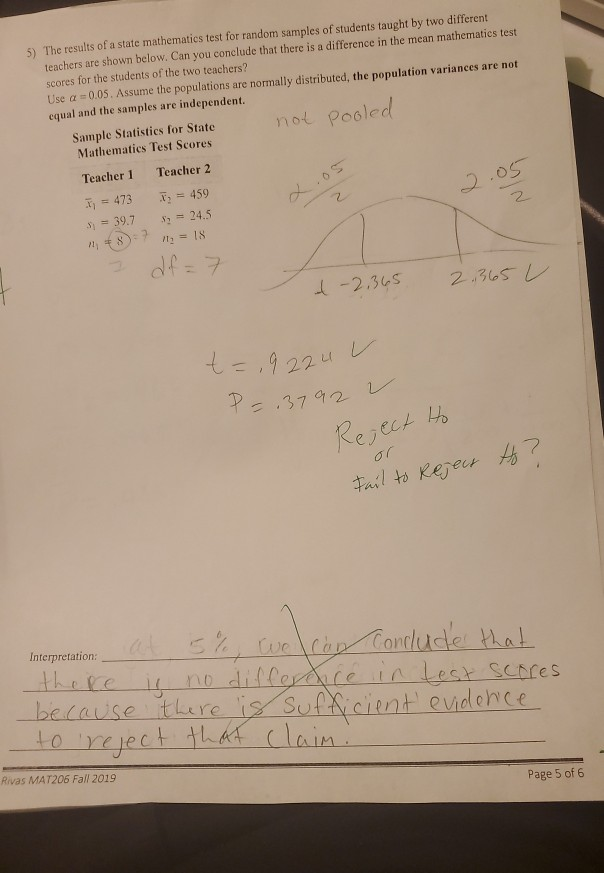 5) The results of a state mathematics test for random samples of students taught by two different
teachers are shown below. Can you conclude that there is a difference in the mean mathematics test
scores for the students of the two teachers?
Use α = 0.05. Assume the populations are normally distributed, the population variances are not
equal and the samples are independent.
not pooled
Sample Statistics for State
Mathematics Test Scores
Teacher 1 Teacher 2
x̄₁ = 473 x̄₂ = 459
s₁ = 39.7 s₂ = 24.5
n₁ = 8 = 7 n₂ = 18
df = 7
.05/2
2.05/2
-2.365 2.365 ✓
t = .9224 ✓
P = .3792 ✓
Reject Ho
or
Fail to Reject Ho?
Interpretation: at 5%, we can conclude that
there is no difference in test scores
because there is sufficient evidence
to reject that claim.
Rivas MAT206 Fall 2019
Page 5 of 6